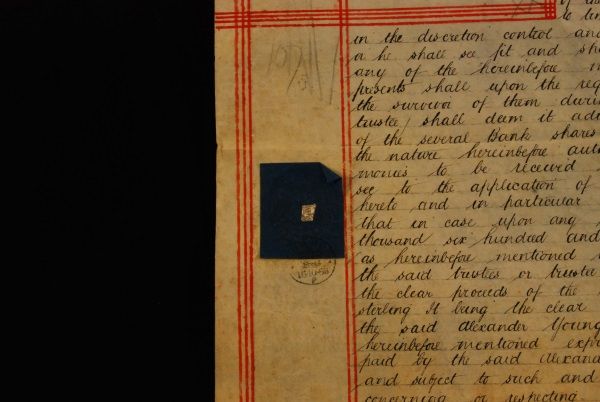 to
in the discretion control and
or he shall see fit and sh
any of the hereinbefore
presents shall upon the req
the survivor of them durin
trustee/ shall deem it ad
of the several Bank shares
the nature hereinbefore auth
monies to be received
see to the application of
hereto and in particular
that in case upon any
thousand six hundred and
as hereinbefore mentioned
the said trustees or trustee
the clear proceeds of the
sterling It being the clear
the said Alexander Young
hereinbefore mentioned exp
paid by the said Alexand
and subject to such and
concerning or respecting